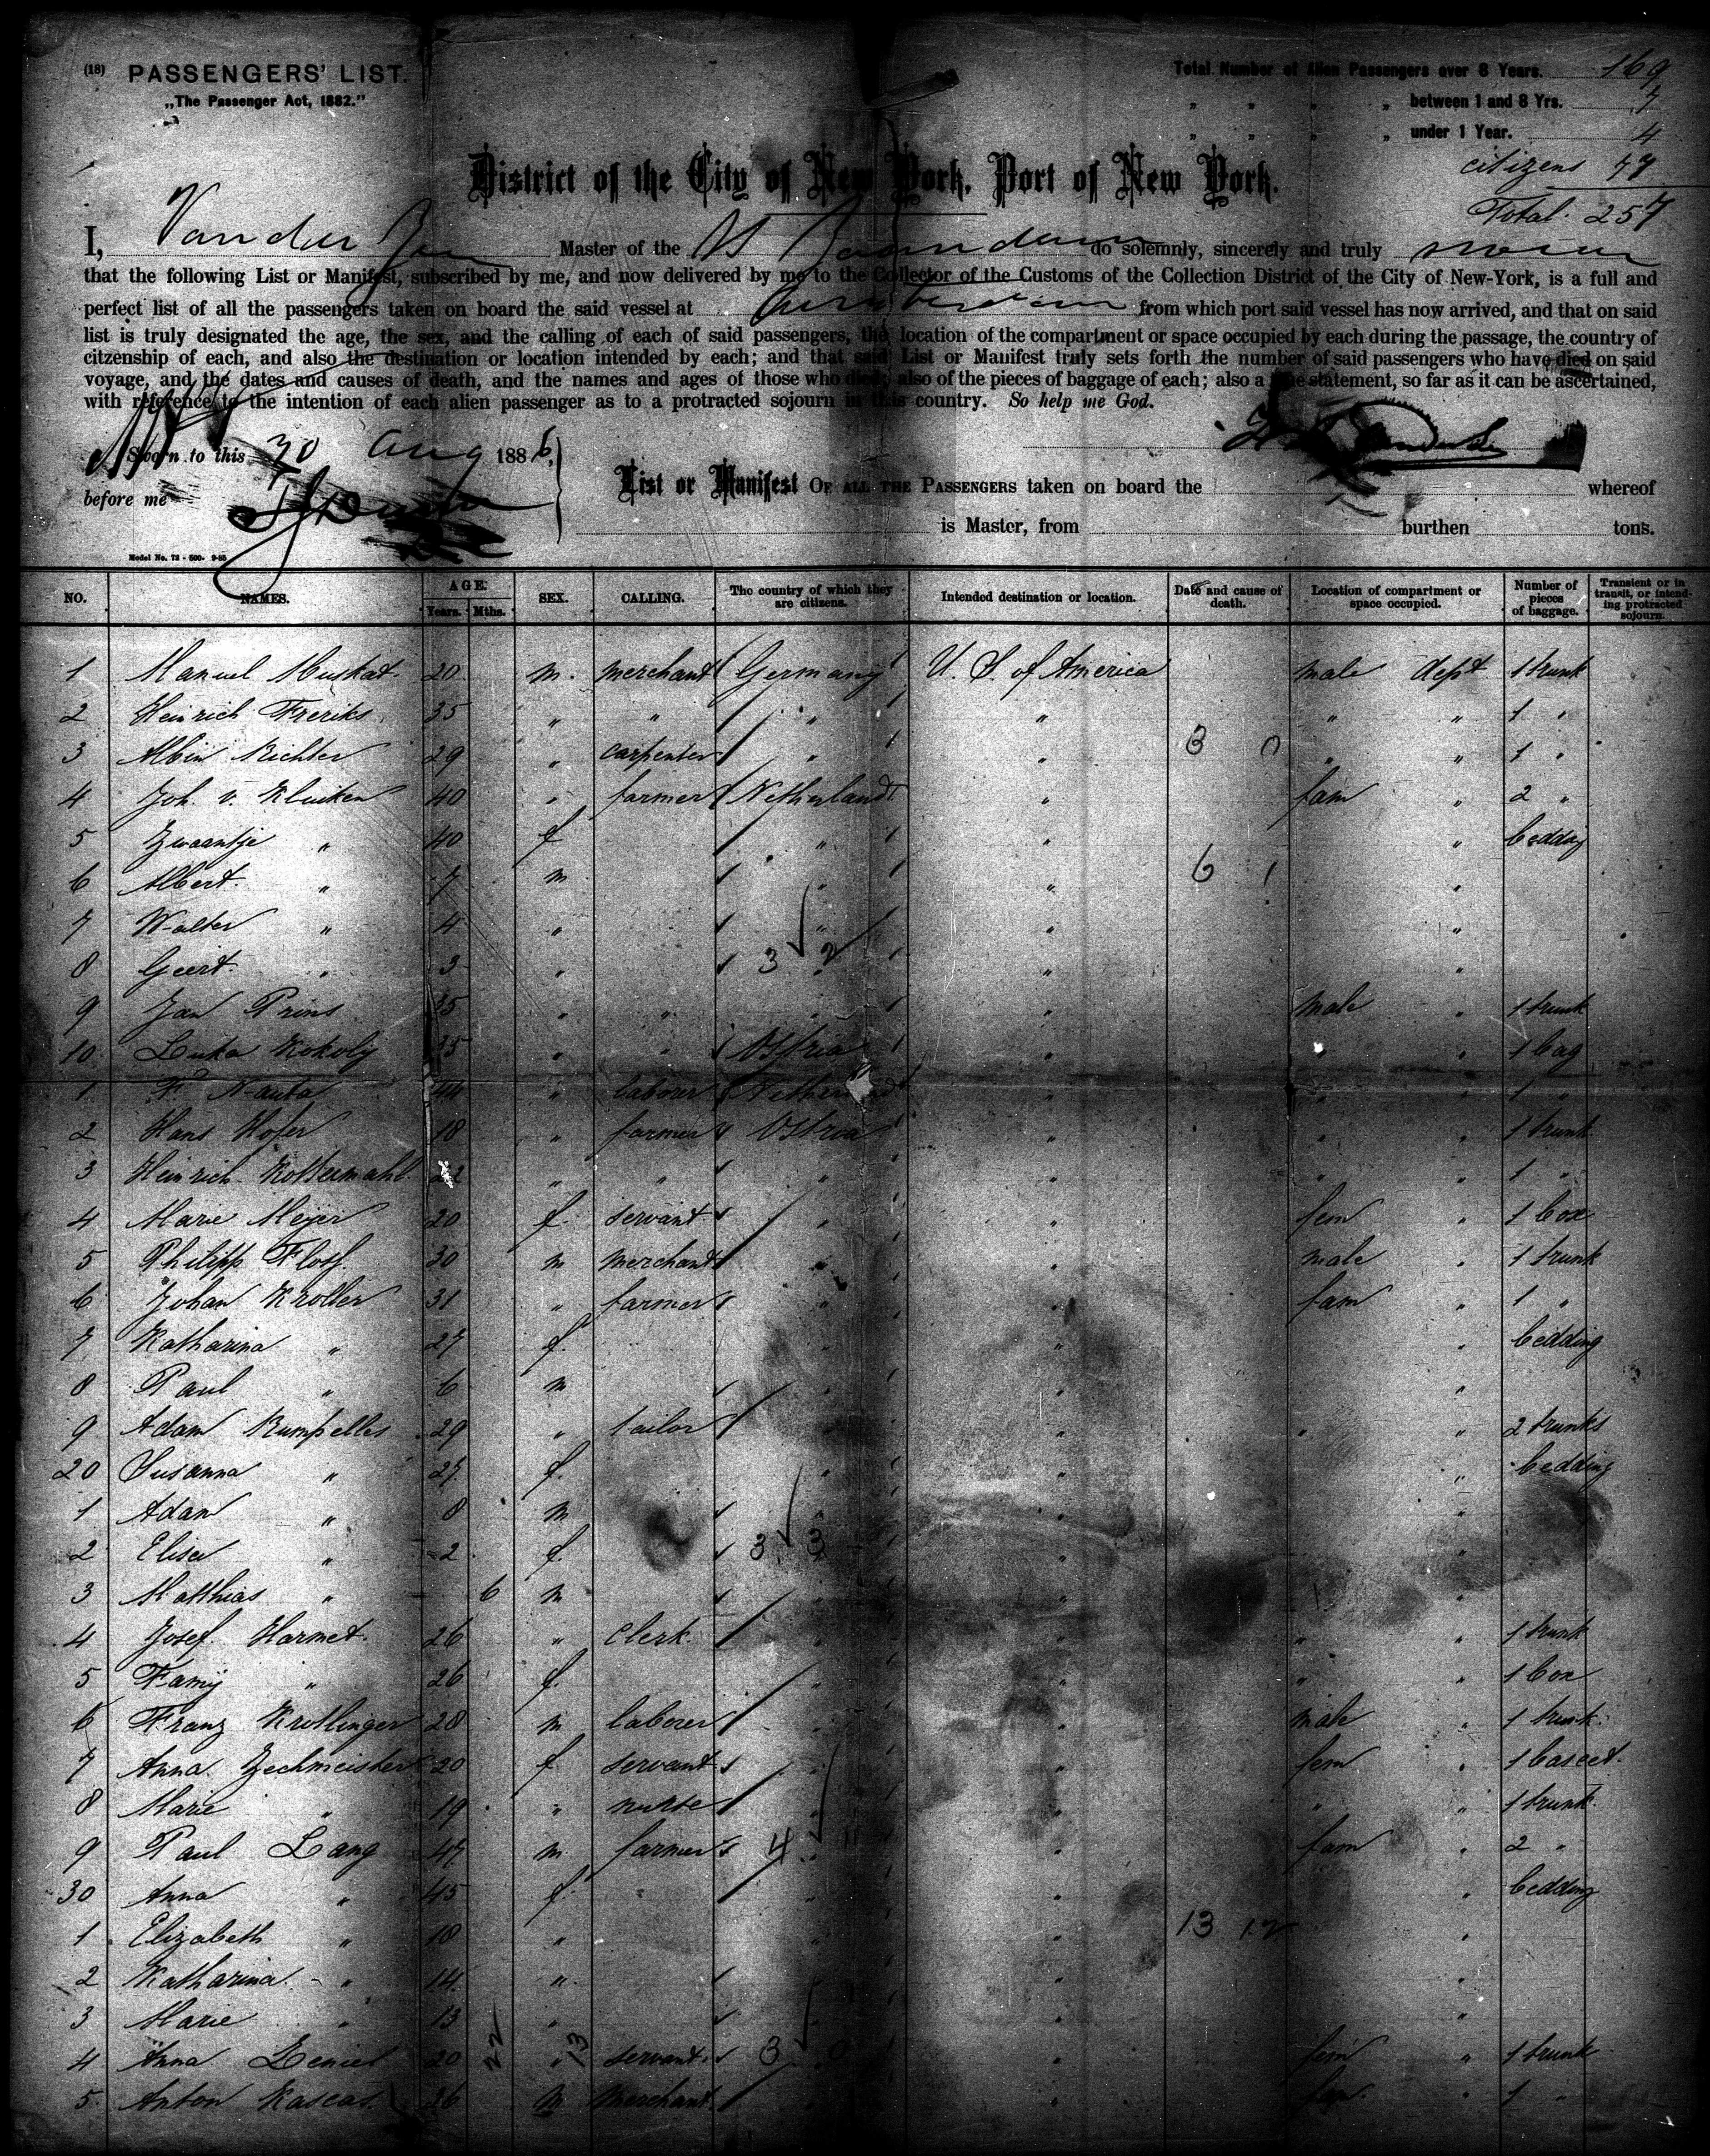 (18) PASSENGERS' LIST.
„The Passenger Act, 1882."
Total Number of Alien Passengers over 8 Years. 169
„ „ „ „ between 1 and 8 Yrs. 7
„ „ „ „ under 1 Year. 4
citizens 77
Total 257
District of the City of New York, Port of New York.
I, Van der Zee Master of the SS Zaandam do solemnly, sincerely and truly swear
that the following List or Manifest, subscribed by me, and now delivered by me to the Collector of the Customs of the Collection District of the City of New-York, is a full and
perfect list of all the passengers taken on board the said vessel at Amsterdam from which port said vessel has now arrived, and that on said
list is truly designated the age, the sex, and the calling of each of said passengers, the location of the compartment or space occupied by each during the passage, the country of
citzenship of each, and also the destination or location intended by each; and that said List or Manifest truly sets forth the number of said passengers who have died on said
voyage, and the dates and causes of death, and the names and ages of those who died; also of the pieces of baggage of each; also a true statement, so far as it can be ascertained,
with reference to the intention of each alien passenger as to a protracted sojourn in this country. So help me God.
Sworn to this 30 Aug 1886
before me
List or Manifest OF ALL THE PASSENGERS taken on board the whereof
is Master, from burthen tons.
Model No. 72 - 500- 9-85
NO. NAMES. AGE. Years. Mths. SEX. CALLING. The country of which they are citizens. Intended destination or location. Date and cause of death. Location of compartment or space occupied. Number of pieces of baggage. Transient or in transit, or intending protracted sojourn.
1 Manuel Muskat 20 m. merchant Germany U. S. of America male dept 1 trunk
2 Heinrich Freriks 35 „ „ „ „ „ „ 1 „
3 Albin Richter 29 „ carpenter „ „ 3 0 „ „ 1 „
4 Joh. v. Kluiken 40 „ farmer Netherlands „ fam „ 2 „
5 Zwaantje „ 40 f „ „ „ bedding
6 Albert „ 7 m „ „ 6 1 „
7 Walter „ 4 „ „ „ „
8 Geert „ 3 „ 3 2 „ „ „
9 Jan Prins 35 „ „ „ male „ 1 trunk
10 Luka Kokoly 35 „ „ Ostria „ „ „ 1 bag
1 F. Nauta 44 „ laborer Netherland „ „ 1 „
2 Hans Hofer 18 „ farmer Ostria „ „ „ 1 trunk
3 Heinrich 22 „ „ „ „ „ „ 1 „
4 Marie Meyer 20 f. servant „ „ fem „ 1 box
5 Philipp 30 m merchant „ „ male „ 1 trunk
6 Johan Kroller 31 „ farmer „ „ fam „ 1 „
7 Katharina „ 27 f. „ „ „ bedding
8 Paul „ 6 m „ „ „
9 Adam Rumpelles 29 „ tailor „ „ „ „ 2 trunks
20 Susanna „ 27 f. „ „ „ bedding
1 Adam „ 8 m „ „ „
2 Elise „ 2 f. 3 3 „ „
3 Matthias „ 6 m „ „ „
4 Josef Harmet 26 „ clerk „ „ „ „ 1 trunk
5 Fanny „ 26 f. „ „ „ „ 1 box
6 Franz Krotlinger 28 m laborer „ „ male „ 1 trunk
7 Anna Zechmeister 20 f servant „ „ fem „ 1 basket
8 Marie „ 19 „ nurse „ „ „ „ 1 trunk
9 Paul Lang 47 m farmer 4 11 „ „ fam „ 2 „
30 Anna „ 45 f. „ „ „ bedding
1 Elizabeth „ 18 „ „ „ 13 12 „
2 Katharina „ 14 „ „ „ „
3 Marie „ 13 „ „ „ „
4 Anna 20 „ servant 3 0 „ fem „ 1 trunk
5 Anton Kascas 36 m merchant „ „ fam. „ 1 „
22 13